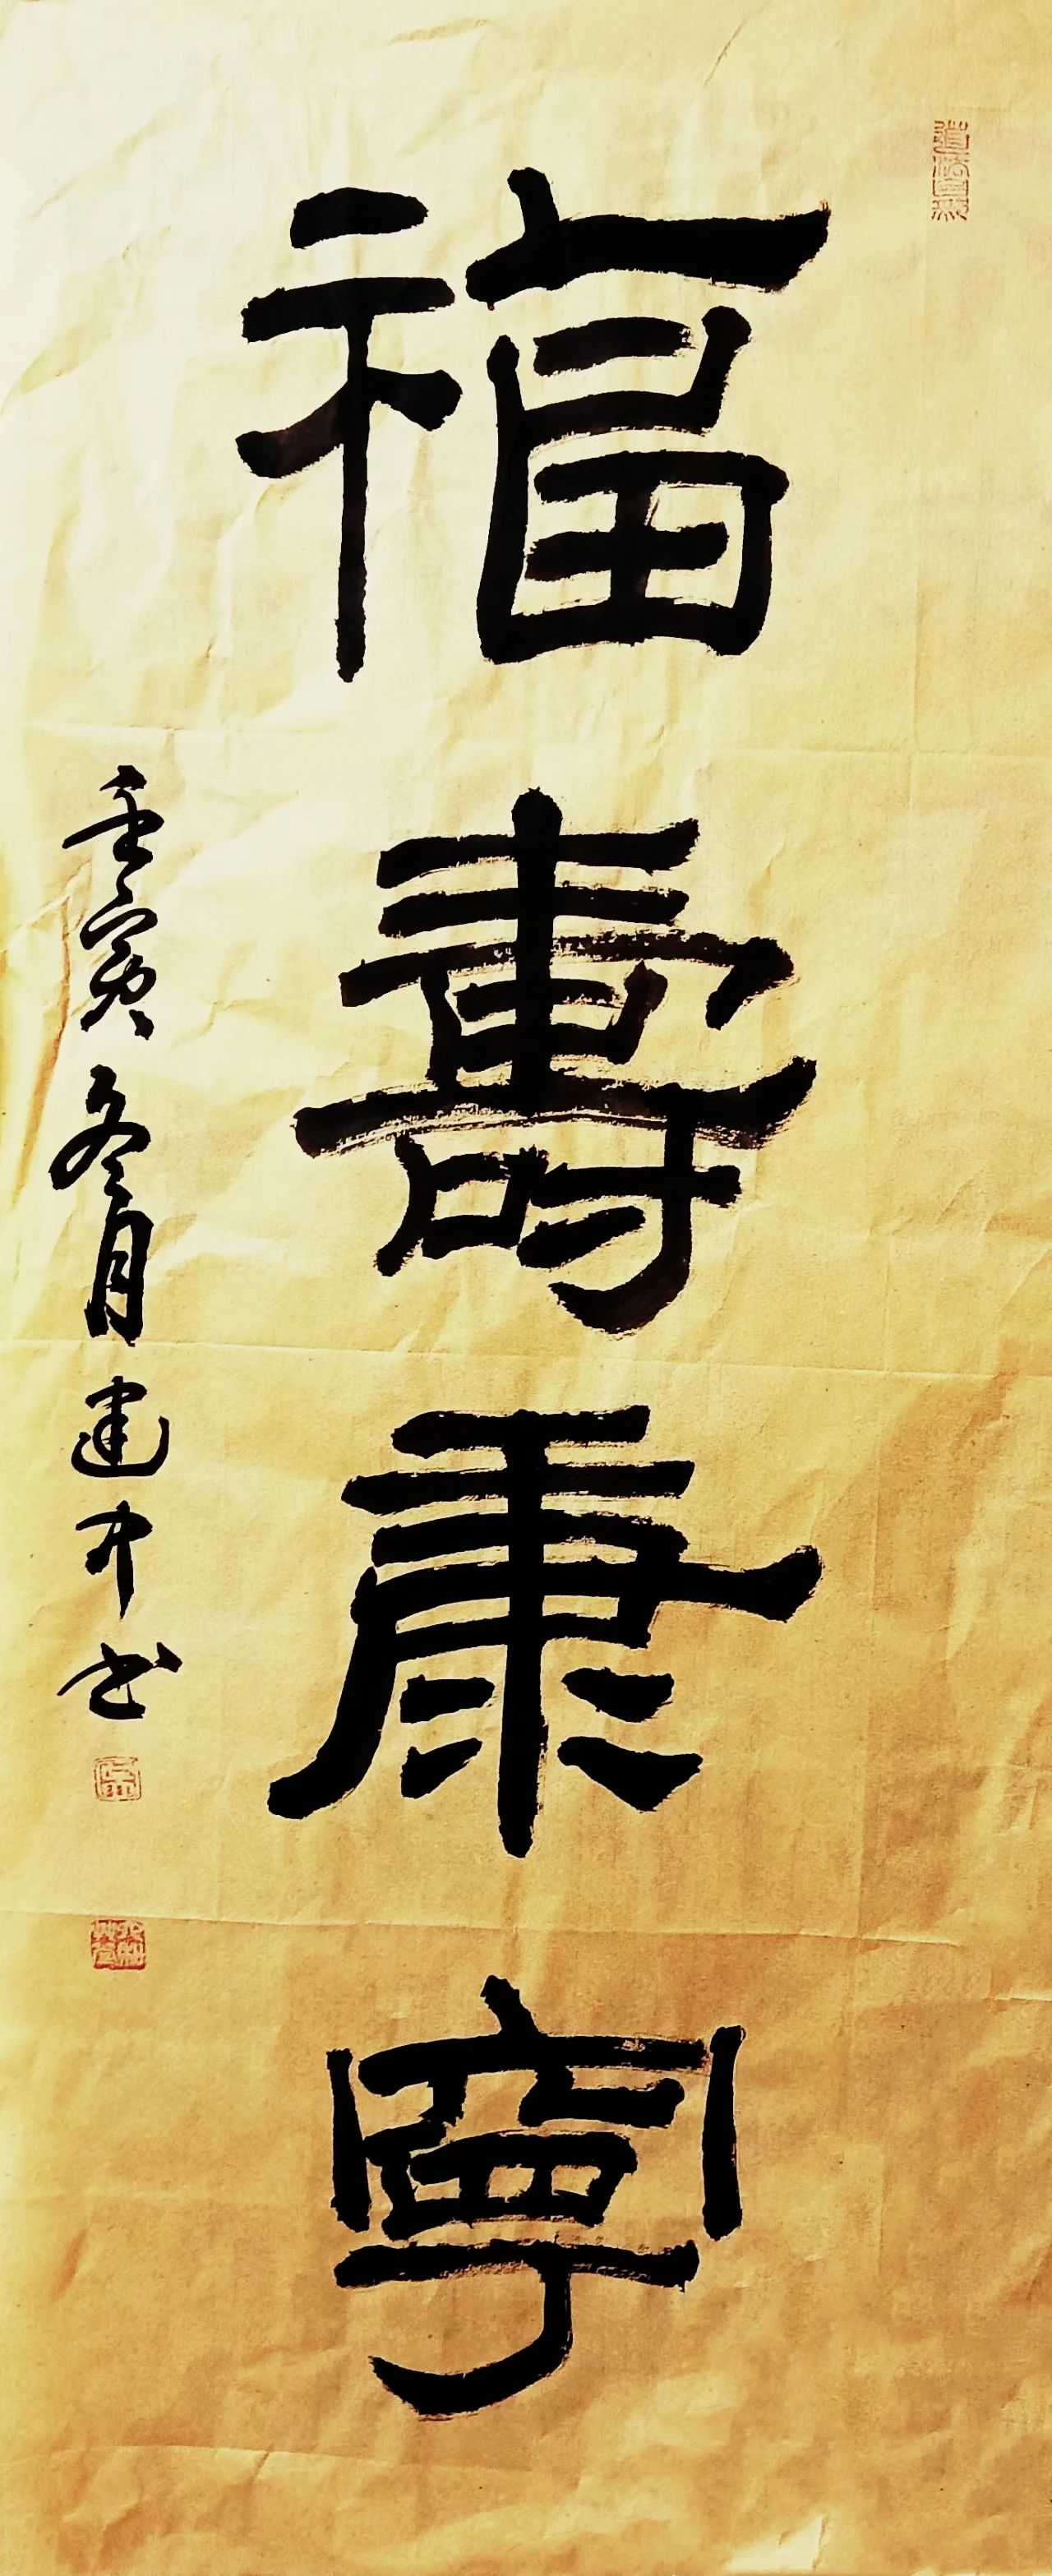 福壽康寧
壬寅冬月建中书